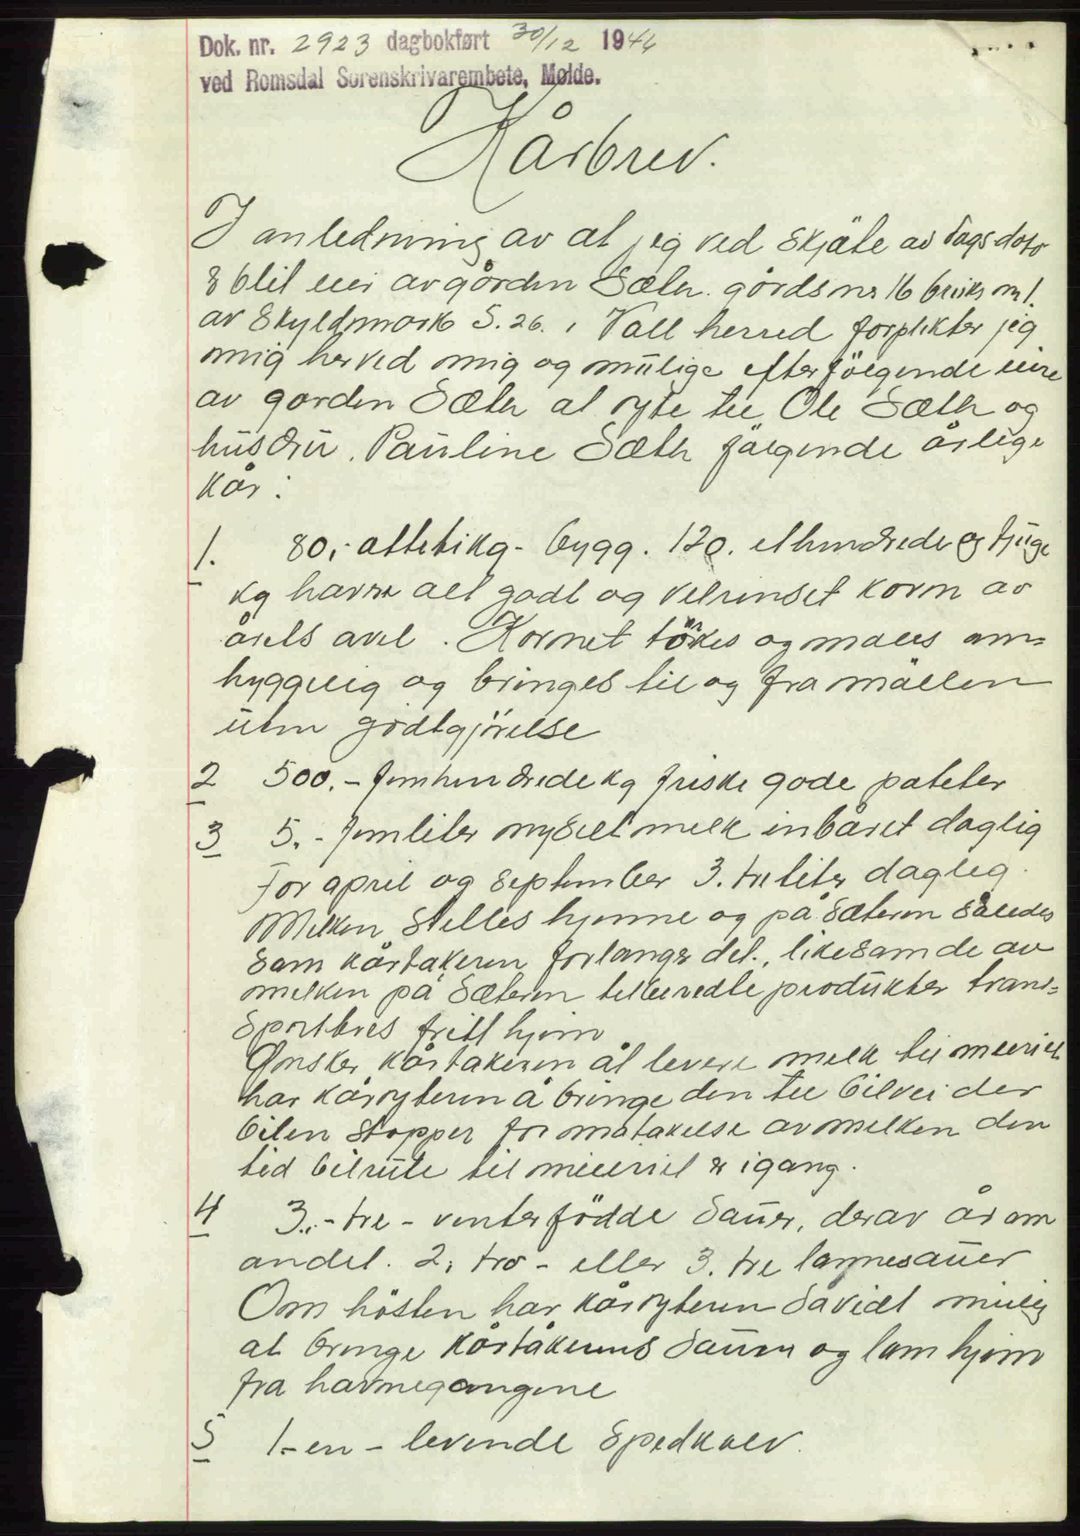 Dok. nr. 2923 dagbokført 30/12 1944
ved Romsdal Sorenskrivarembete, Molde.
Kårbrev.
I anledning av at jeg ved Skjöte av dags dato
er blit eier avgården Sæth. gårdsnr 16 bruks nr 1.
av Skyldmark 5.26. i Voll herred forplikter jeg
mig herved mig og mulige efterfölgende eiere
av gården Sæth at yte til Ole Sæth og
husdru. Pauline Sæth fölgende årlige
kår:
1. 80,- åtteti kg- bygg. 120. ethundrede og tjuge
kg havre alt godt og velrenset korn av
årets avl. Kornet törkes og males om=
hyggelig og bringes til og fra möllen
uten godtgjörelse
2 500.- femhundrede kg friske gode poteter
3 5.- femliter nysilt melk inbåret daglig
For april og September 3. tre liter dagleg.
Melken Stelles hjemme og på Sæteren Således
Som kårtakeren forlanger det., likesom de av
melken på Sæteren tilberedte produkter trans=
Sportbres fritt hjem
Önsker kårtakeren åt levere melk til meieriet
har kårryteren å bringe den til bilvei der
bilen Stopper for motakelse av melken den
tid bilrute til meieriet er igang.
4 3.- tre - vinterfödde Sauer, derav år om
andet. 2. tro - eller 3. tre lammesauer
Om hösten har kårryteren Såvidt mulig
at bringe kårtåkerens Sauer og lam hjem
fra havnegangene
5 1.- en - levende Spedkalv.